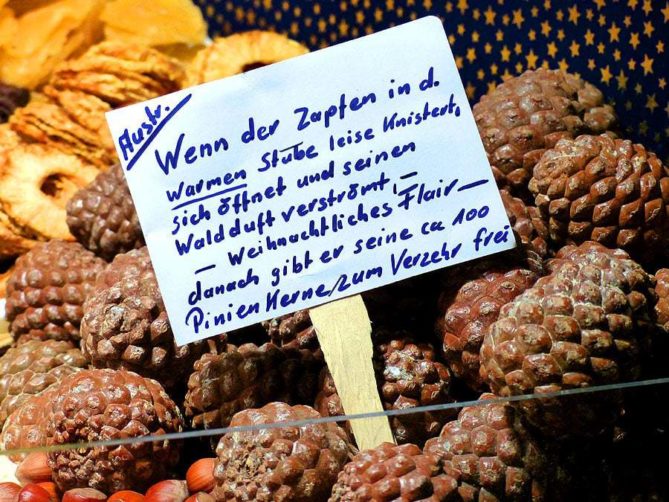 Austr.
Wenn der Zapfen in d.
warmen Stube leise Knistert,
sich öffnet und seinen
Waldduft verströmt, –
– Weihnachtliches Flair –
danach gibt er seine ca 100
Pinienkerne zum Verzehr frei